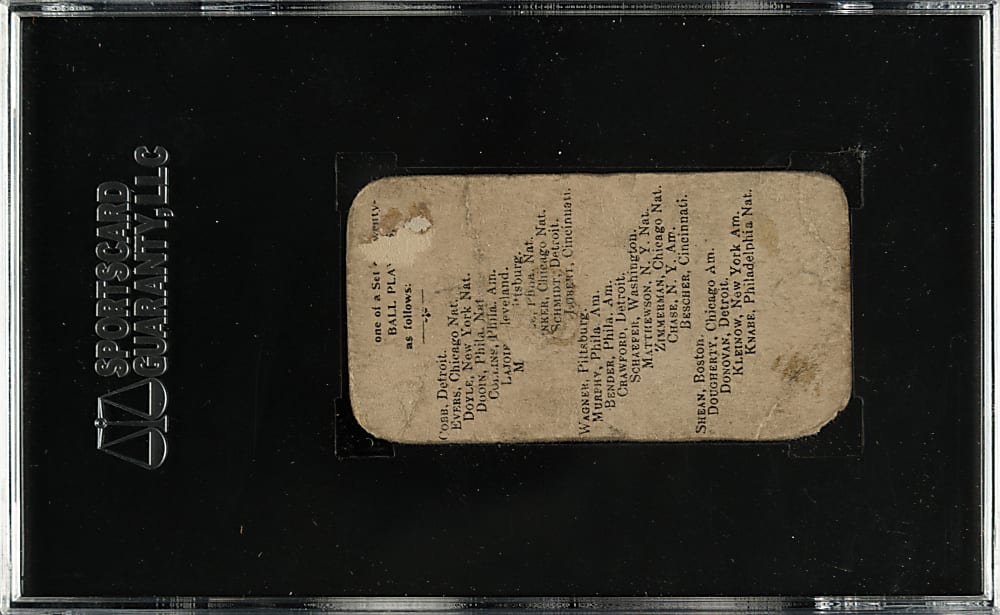 SPORTSCARD
GUARANTY, LLC
one of a Set
BALL PLA
as follows:
COBB, Detroit.
EVERS, Chicago Nat.
DOYLE, New York Nat.
DOOIN, Phila. Nat
COLLINS, Phila. Am.
LAJOIE
M
Phila. Nat.
Chicago Nat.
SCHMIDT, Detroit.
Cincinnati.
WAGNER, Pittsburg.
MURPHY, Phila. Am.
BENDER, Phila. Am.
CRAWFORD, Detroit.
SCHAEFER, Washington.
MATTHEWSON, N. Y. Nat.
ZIMMERMAN, Chicago Nat.
CHASE, N. Y. Am.
BESCHER, Cincinnati.
SHEAN, Boston.
DOUGHERTY, Chicago Am.
DONOVAN, Detroit.
KLEINOW, New York Am.
KNABE, Philadelphia Nat.